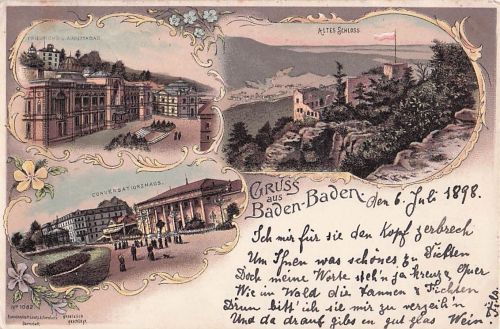 FRIEDRICHS- u. AUGUSTABAD.
ALTES SCHLOSS.
CONVERSATIONSHAUS.
GRUSS
aus
BADEN-BADEN.
den 6. Juli 1898.
Ich mir für sie den Kopf zerbrech
Um Ihnen was schönes zu Dichten
Doch meine Worte steh'n ja kreuz & quer
Wie im Wald die Tannen & Fichten
Drum bitt' ich sie mir zu verzeih'n
Und da drauf giles en gut glas Wein
No 1082